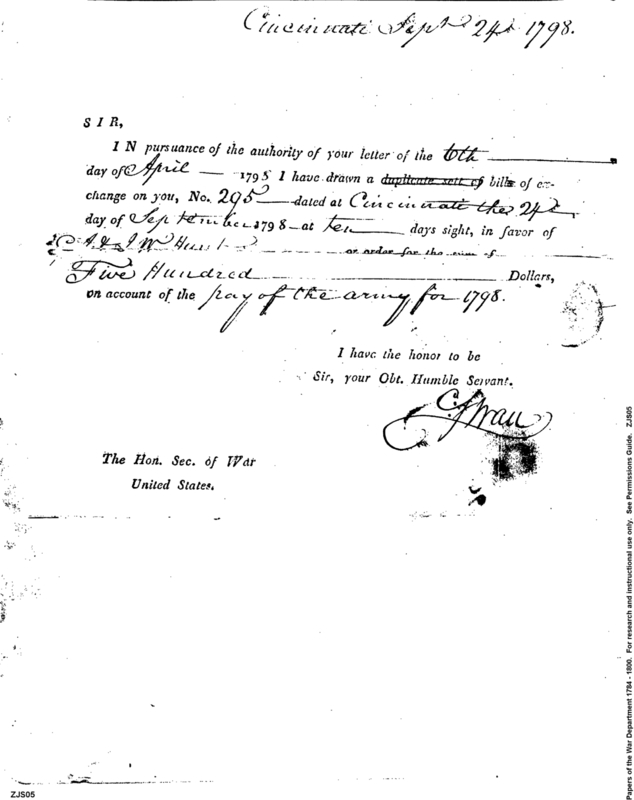 Cincinnati Sept 24th 1798.
SIR,
IN pursuance of the authority of your letter of the 6th
day of April 1798 I have drawn a duplicate sett of bills of ex-
change on you, No. 295 dated at Cincinnati the 24th
day of September 1798 at ten days sight, in favor of
A & J W Hunt or order for the sum of
Five Hundred Dollars,
on account of the pay of the army for 1798.
I have the honor to be
Sir, your Obt. Humble Servant.
C Swan
The Hon. Sec. of War
United States.
Papers of the War Department 1784 - 1800. For research and instructional use only. See Permissions Guide. ZJS05
ZJS05